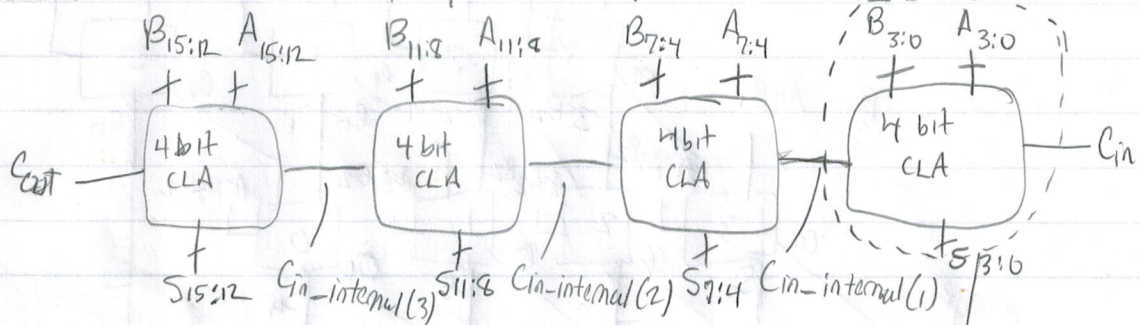 B15:12 A15:12 B11:8 A11:8 B7:4 A7:4 B3:0 A3:0
4 bit 4 bit 4 bit 4 bit
Cout CLA CLA CLA CLA Cin
S15:12 Cin_internal(3) S11:8 Cin_internal(2) S7:4 Cin_internal(1) S3:0